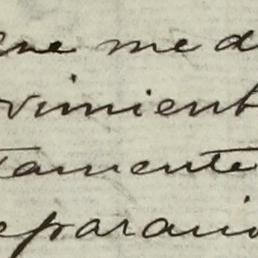 ue me d
vimient
tamente
eparan